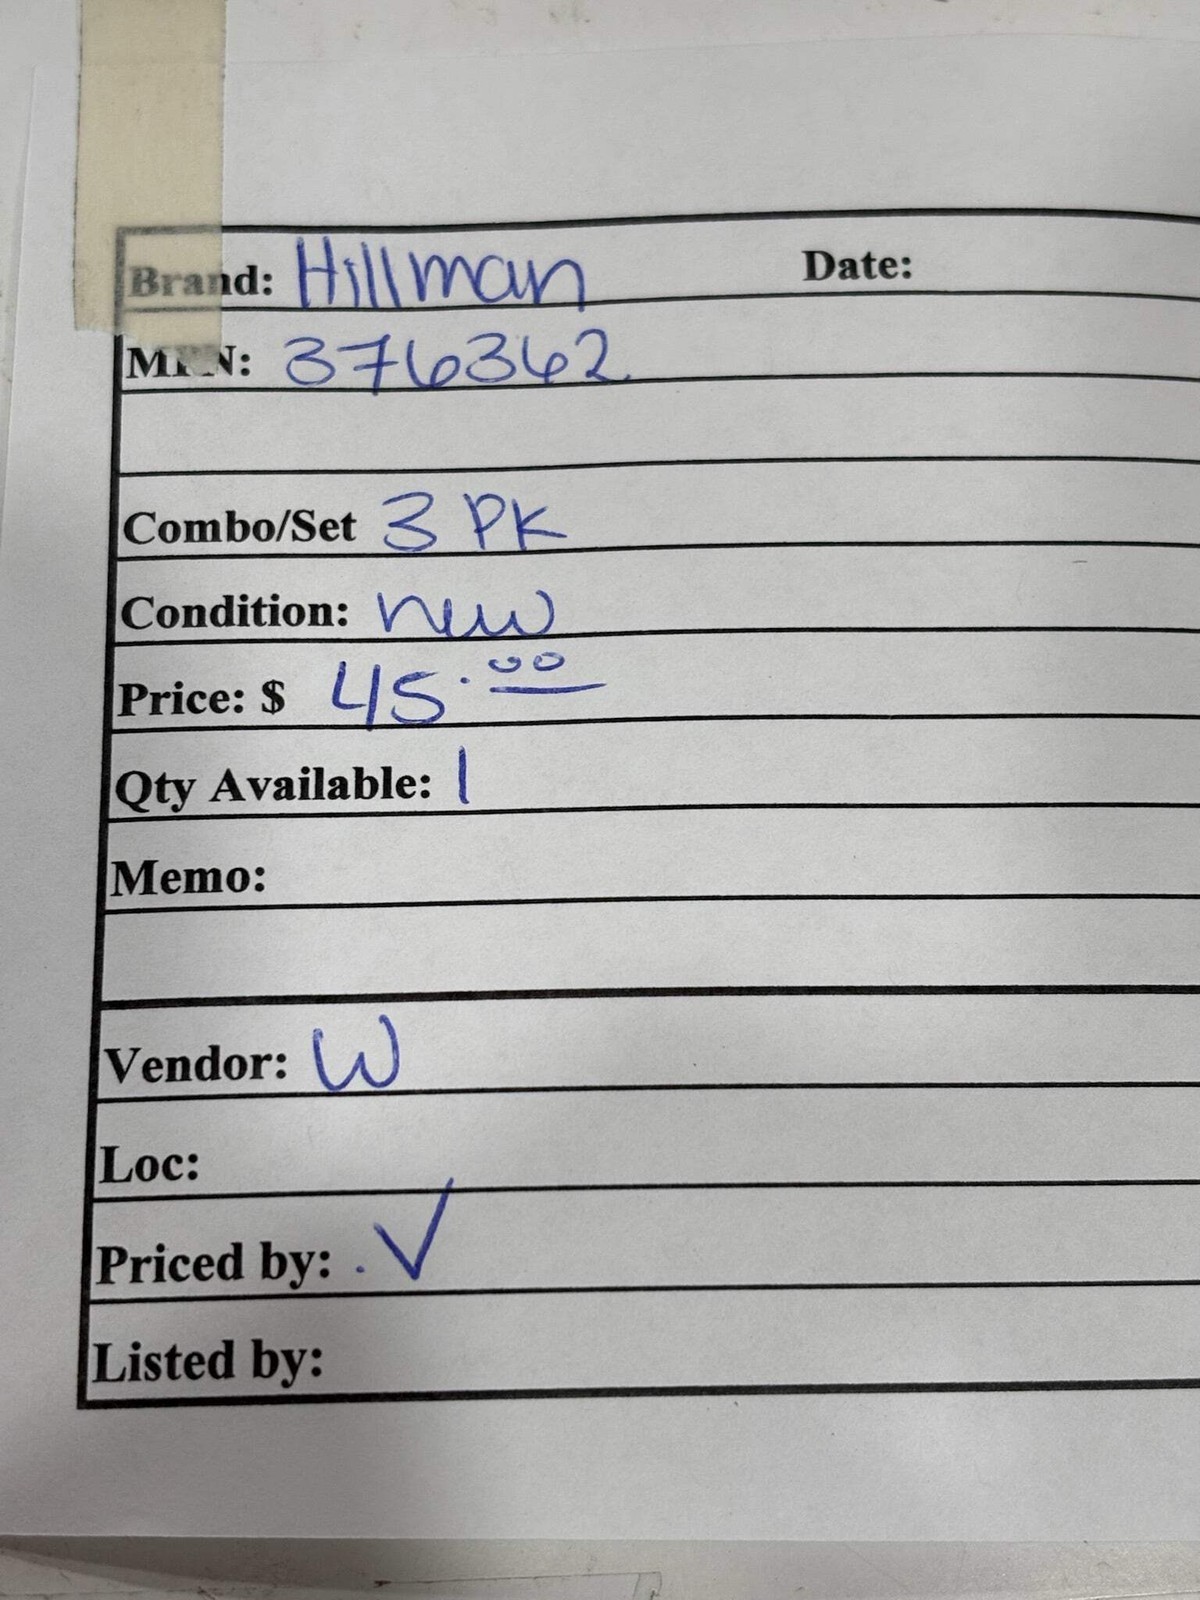 Brand: Hillman Date:
MPN: 376362
Combo/Set 3 PK
Condition: new
Price: $ 45.00
Qty Available: 1
Memo:
Vendor: W
Loc:
Priced by: . ✓
Listed by: